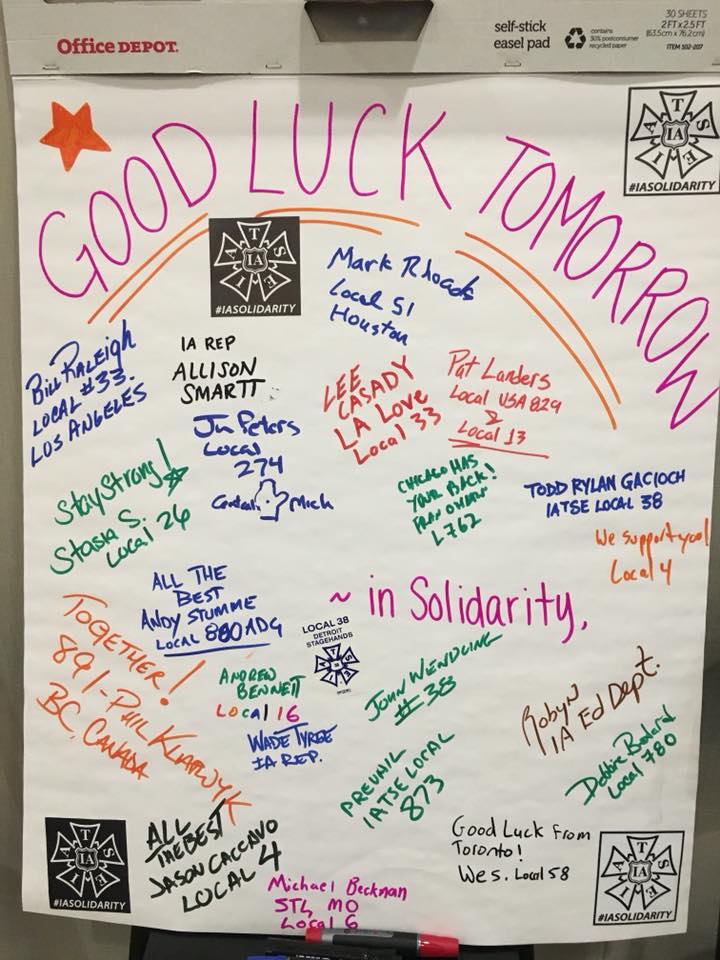 Office DEPOT.
self-stick
easel pad
contains
30% postconsumer
recycled paper
30 SHEETS
2 FT x 2.5 FT
(63.5cm x 76.2cm)
ITEM 102-207
GOOD LUCK TOMORROW
IATSE
IA
#IASOLIDARITY
IATSE
IA
#IASOLIDARITY
Mark Rhoads
Local 51
Houston
Bill Raleigh
LOCAL #33.
LOS ANGELES
IA REP
ALLISON
SMARTT
LEE
CASADY
LA Love
Local 33
Pat Landers
Local USA 829
&
Local 13
Peters
Local
274
Central Mich
Stay Strong!
Stasia S.
Local 26
CHICAGO HAS
YOUR BACK!
L762
TODD RYLAN GACIOCH
IATSE LOCAL 38
We support you!
Local 4
ALL THE
BEST
ANDY STUMME
LOCAL 880 ADG
~ in Solidarity,
LOCAL 38
DETROIT
STAGEHANDS
TOGETHER!
891-PHIL KLAPWYK
BC, CANADA
ANDREW
BENNETT
LOCAl 16
WADE TYREE
IA REP.
JOHN WENDLING
#38
Robyn
IA Ed Dept.
PREVAIL
IATSE LOCAL
873
Debbie Bedard
Local 780
IATSE
IA
#IASOLIDARITY
ALL
THE BEST
JASON CACCAVO
LOCAL 4
Good Luck from
Toronto!
Wes. Local 58
Michael Beckman
STL MO
Local 6
IATSE
IA
#IASOLIDARITY